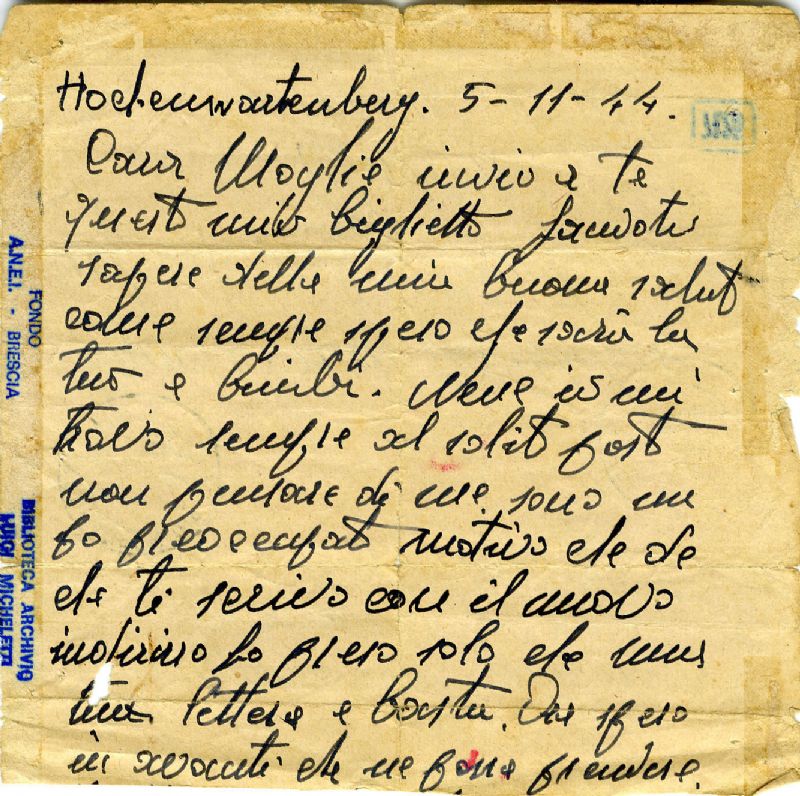 Hochenwartenberg. 5-11-44.
Cara Moglie invio a te
questo mio biglietto facendoti
sapere della mia buona salute
come sempre spero che sarà la
tua e bimbi. Nene io mi
trovo sempre al solito posto
non pensare di me. sono un
po preoccupato motivo che de
che ti scrivo con il nuovo
indirizzo ho preso solo che una
tua lettera e basta. Ora spero
in avanti che ne posso prendere.
FONDO
A.N.E.I. - BRESCIA
BIBLIOTECA ARCHIVIO
LUIGI MICHELETTI